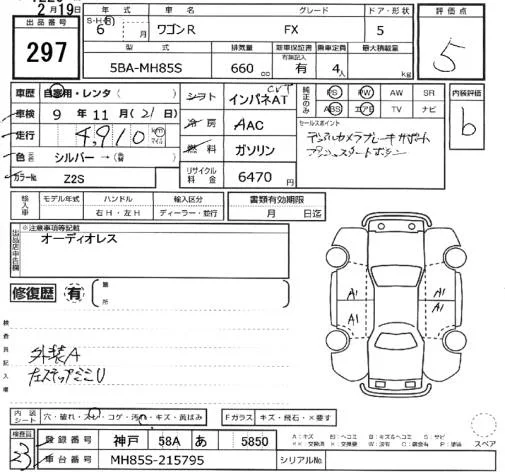 2月19日
年式 車名 グレード ドア・形状 評価点
出品番号 S・H・R 6 月 ワゴンR FX 5 5
297 型式 排気量 新車保証書 有無記入 乗車定員 最大積載量
5BA-MH85S 660 cc 有 4人 kg
車歴 自家用・レンタ( ) シフト インパネAT CVT 純正のみ PS PW AW SR 内装評価
車検 9年11月(21日) 冷房 AAC ABS エアB TV ナビ b
走行 4,910 km マイル 燃料 ガソリン セールスポイント
デュアルカメラブレーキサポート
プッシュスタートボタン
色 シルバー→( )
カラーNo. Z2S リサイクル料金 6470円
輸入車 モデル年式 ハンドル 輸入区分 書類有効期限
右H・左H ディーラー・並行 月 日迄
出品店申告欄 ※注意事項等記載
オーディオレス
修復歴 有 箇所
検査員記入欄
外装A
左ステップミミU
A1 A1
A1
内装シート 穴・破れ・スレ・コゲ・汚れ・キズ・黄ばみ Fガラス キズ・飛石・×要す
スペア
検査員 23 登録番号 神戸 58A あ 5850
車台番号 MH85S-215795 シリアルNo.